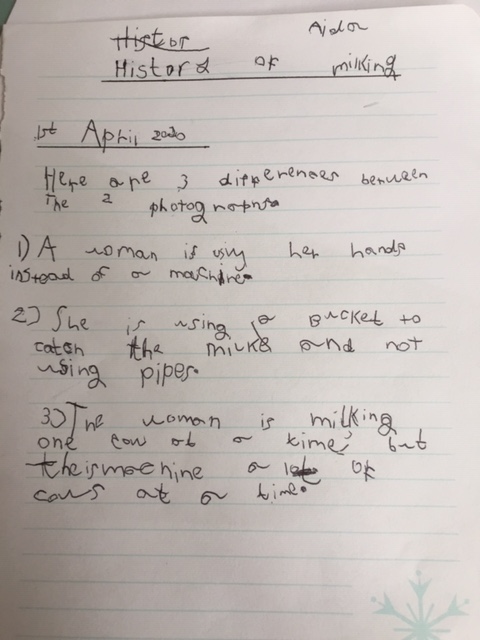 Histor Aidan
History of milking
1st April 2020
Here are 3 differences between
The 2 photographs.
1) A woman is using her hands
instead of a machine.
2) She is using a Bucket to
catch the milk and not
using pipes.
3) The woman is milking
one cow at a time, but
the machine a lot of
cows at a time.